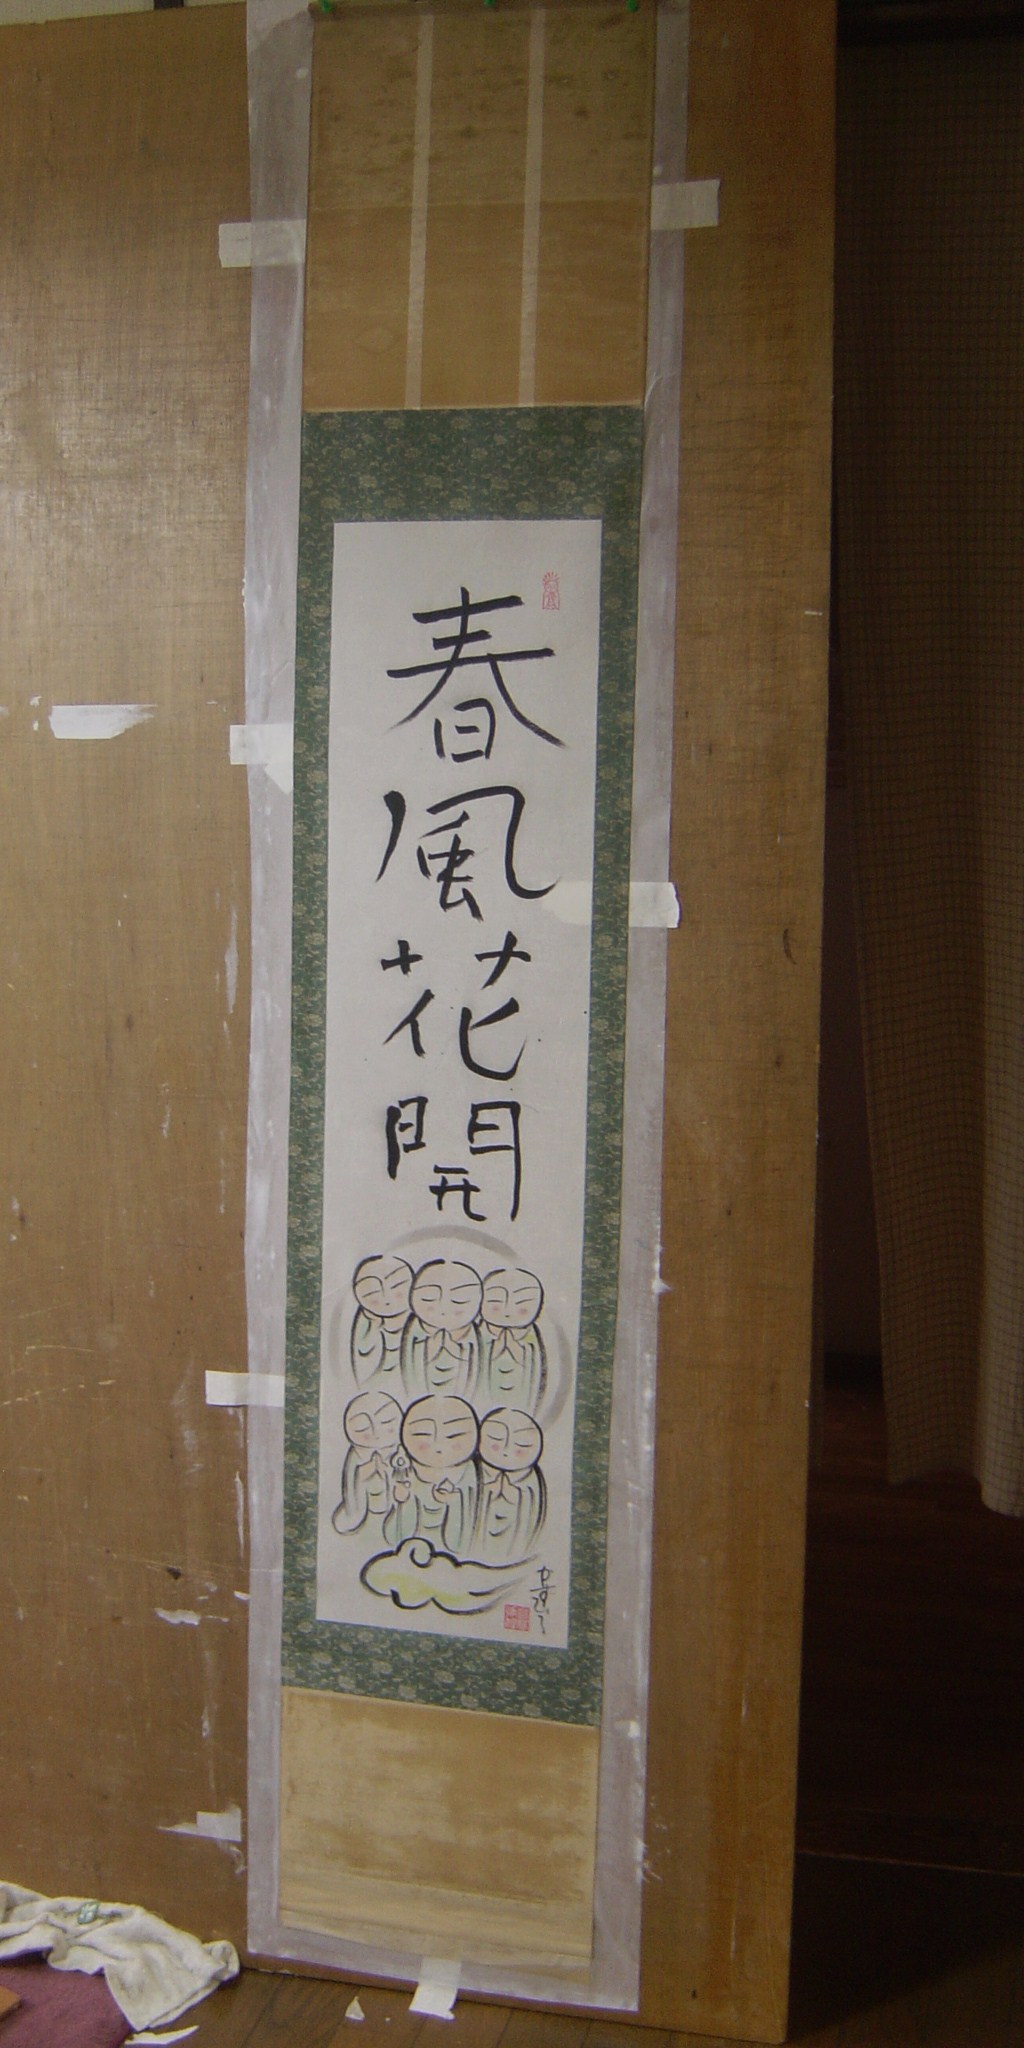 春風花開